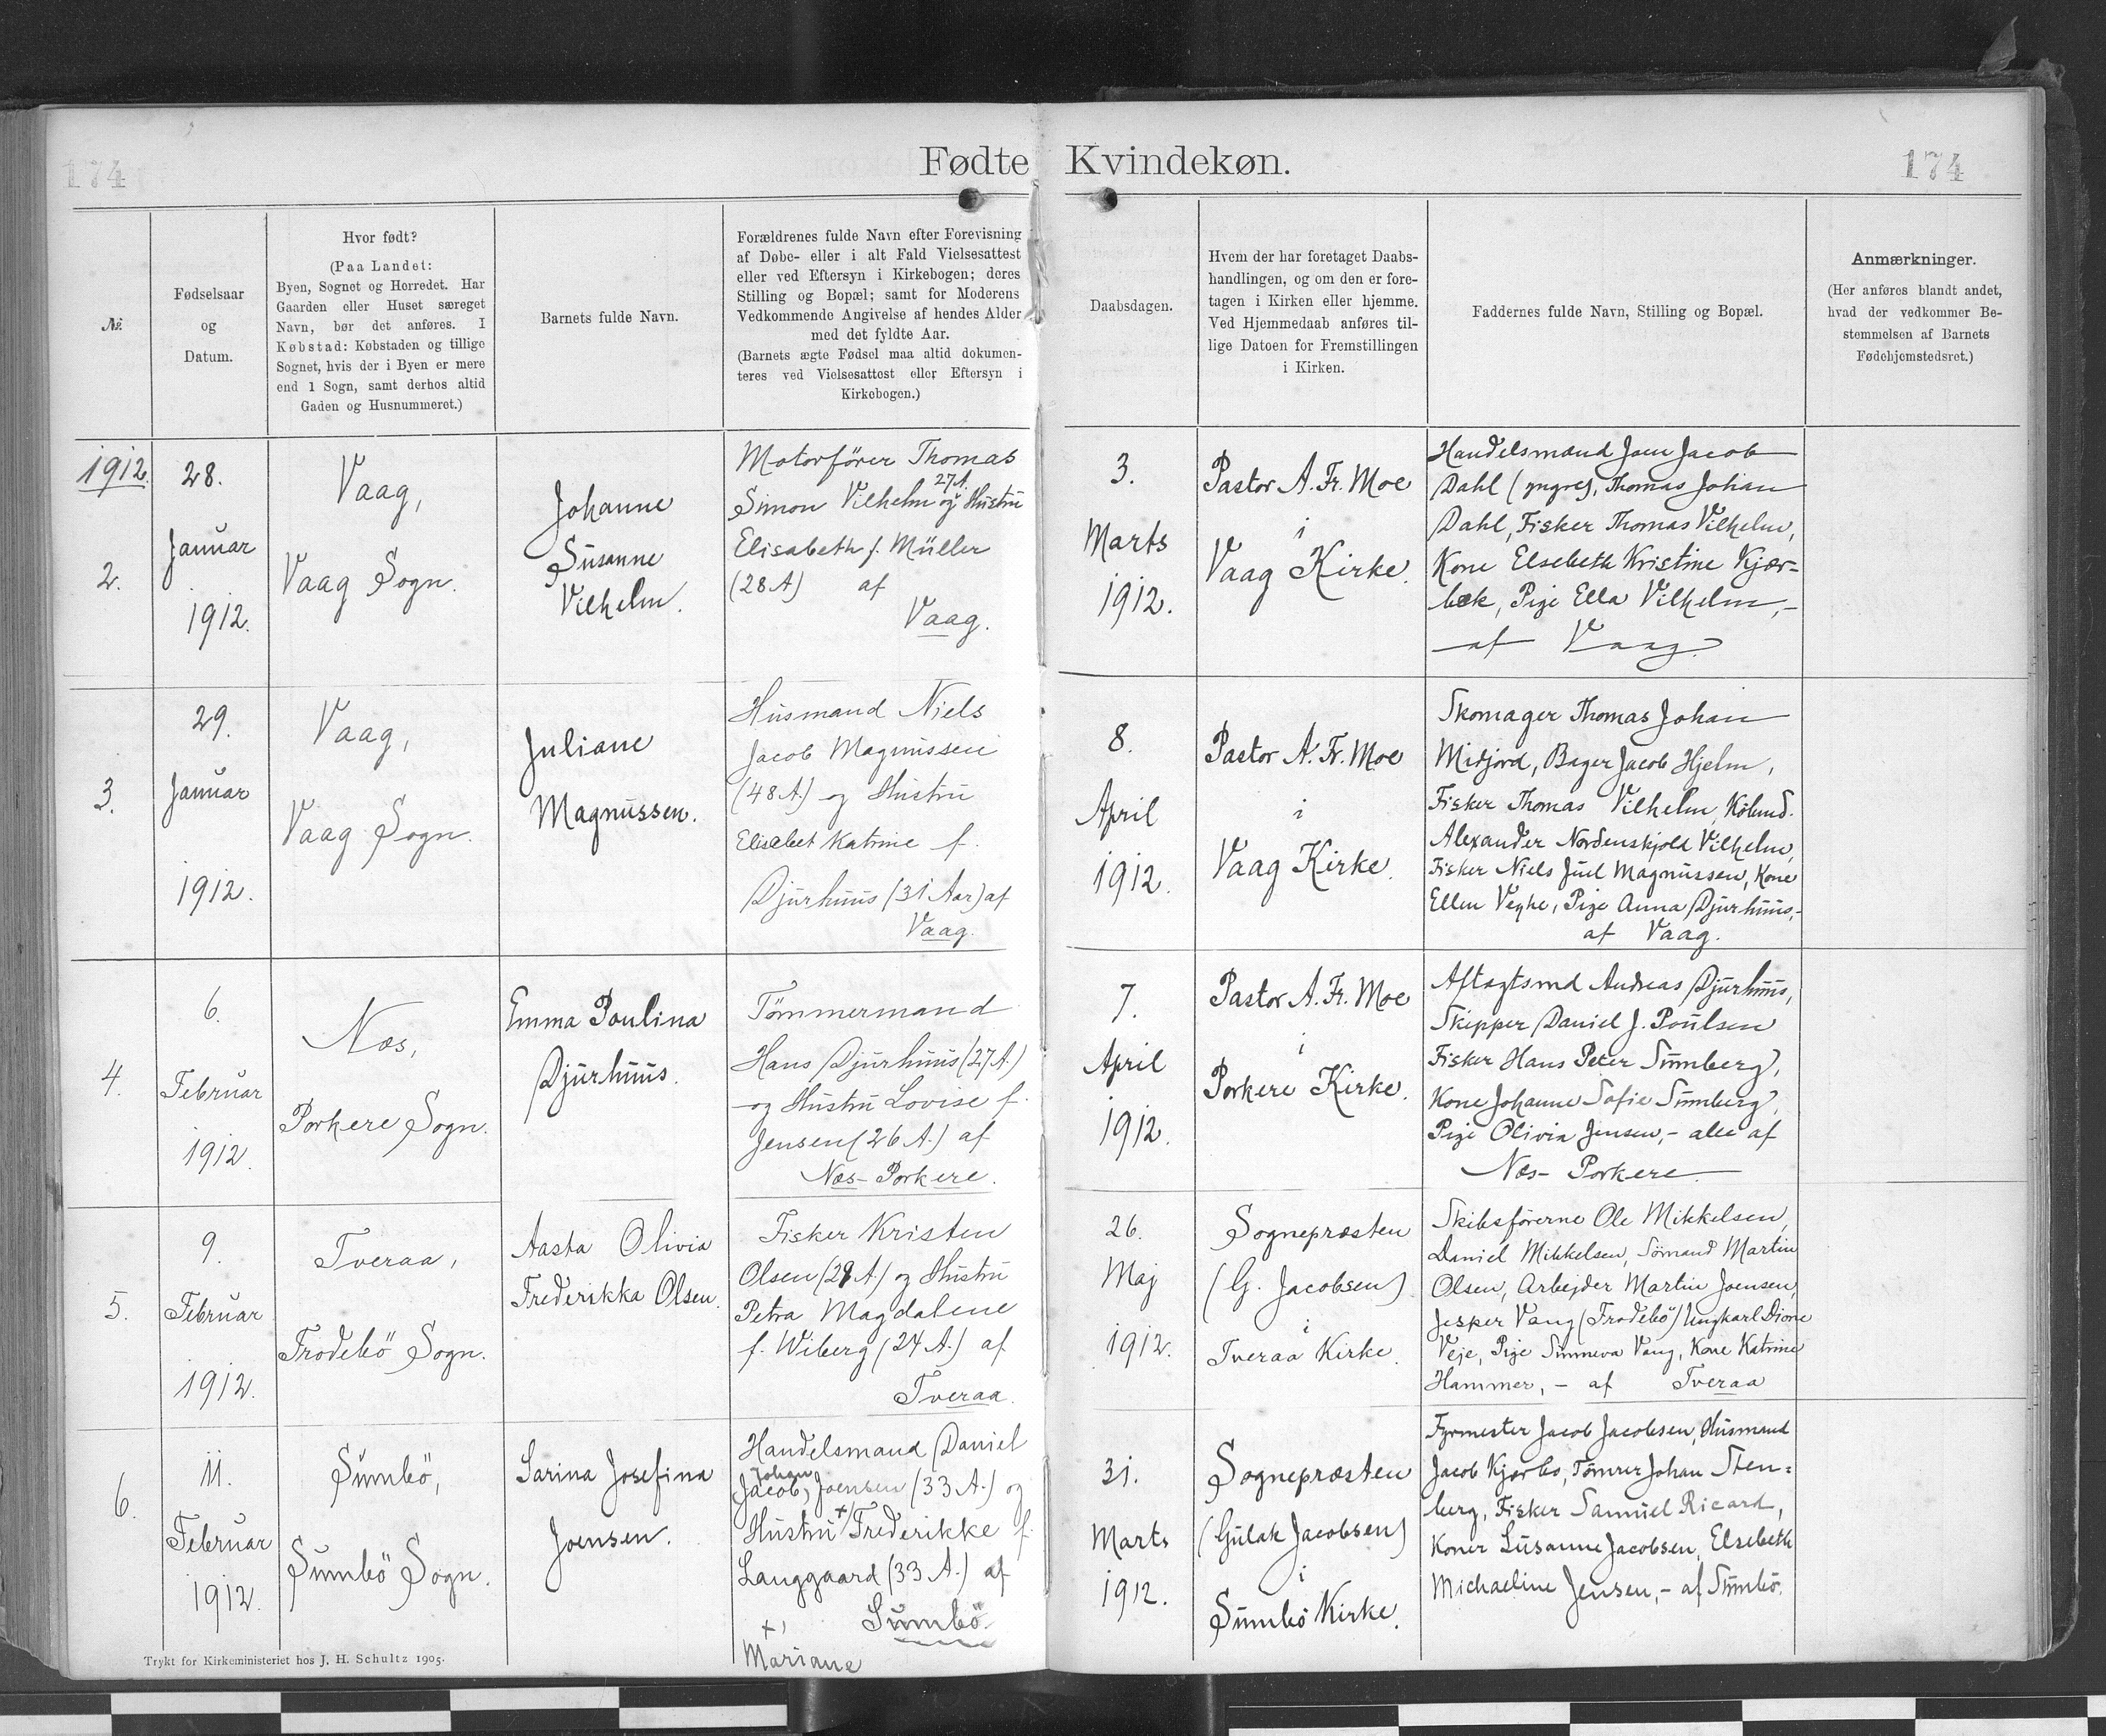 174
Fødte Kvindekøn.
174
№
Fødselsaar
og
Datum.
Hvor født?
(Paa Landet:
Byen, Sognet og Herredet. Har
Gaarden eller Huset særeget
Navn, bør det anføres. I
Købstad: Købstaden og tillige
Sognet, hvis der i Byen er mere
end 1 Sogn, samt derhos altid
Gaden og Husnummeret.)
Barnets fulde Navn.
Forældrenes fulde Navn efter Forevisning
af Døbe- eller i alt Fald Vielsesattest
eller ved Eftersyn i Kirkebogen; deres
Stilling og Bopæl; samt for Moderens
Vedkommende Angivelse af hendes Alder
med det fyldte Aar.
(Barnets ægte Fødsel maa altid dokumen-
teres ved Vielsesattest eller Eftersyn i
Kirkebogen.)
Daabsdagen.
Hvem der har foretaget Daabs-
handlingen, og om den er fore-
tagen i Kirken eller hjemme.
Ved Hjemmedaab anføres til-
lige Datoen for Fremstillingen
i Kirken.
Faddernes fulde Navn, Stilling og Bopæl.
Anmærkninger.
(Her anføres blandt andet,
hvad der vedkommer Be-
stemmelsen af Barnets
Fødehjemstedsret.)
1912.
2.
28.
Januar
1912.
Vaag,
Vaag Sogn.
Johanne
Susanne
Vilhelm.
Motorfører Thomas
27 A.
Simon Vilhelm og Hustru
Elisabeth f. Müller
(28 A) af
Vaag.
3.
Marts
1912.
Pastor A. Fr. Moe
i
Vaag Kirke.
Handelsmand Joen Jacob
Dahl (yngre), Thomas Johan
Dahl, Fisker Thomas Vilhelm,
Kone Elsebeth Kristine Kjær-
bæk, Pige Ella Vilhelm,-
af Vaag.
3.
29.
Januar
1912.
Vaag,
Vaag Sogn.
Juliane
Magnussen.
Husmand Niels
Jacob Magnussen
(48 A.) og Hustru
Elisabet Katrine f.
Djurhuus (31 Aar) af
Vaag.
8.
April
1912.
Pastor A. Fr. Moe
i
Vaag Kirke.
Skomager Thomas Johan
Midjord, Bager Jacob Hjelm,
Fisker Thomas Vilhelm,
Alexander Nordenskjold Vilhelm,
Fisker Niels Juul Magnussen, Kone
Ellen Veyhe, Pige Anna Djurhuus,-
af Vaag.
4.
6.
Februar
1912.
Næs,
Porkere Sogn.
Emma Poulina
Djurhuus.
Tømmermand
Hans Djurhuus (27 A.)
og Hustru Lovise f.
Jensen (26 A.) af
Næs- Porkere.
7.
April
1912.
Pastor A. Fr. Moe
i
Porkere Kirke.
Aftægtsmd Andreas Djurhuus,
Skipper Daniel J. Poulsen
Fisker Hans Peter Sumberg,
Kone Johanne Sofie Sumberg,
Pige Olivia Jensen,- alle af
Næs- Porkere.
5.
9.
Februar
1912.
Tveraa,
Frodebö Sogn.
Aasta Olivia
Frederikka Olsen.
Fisker Kristen
Olsen (29 A.) og Hustru
Petra Magdalene
f. Wiberg (24 A.) af
Tveraa.
26.
Maj
1912.
Sognepræsten
(G. Jacobsen)
i
Tveraa Kirke.
Skibsförerne Ole Mikkelsen,
Daniel Mikkelsen, Sömand Martin
Olsen, Arbejder Martin Joensen,
Jesper Vang (Frodebö) Ungkarl Dione
Veje, Pige Sunneva Vang, Kone Katrine
Hammer, - af Tveraa
6.
11.
Februar
1912.
Sumbö,
Sumbö Sogn.
Sarina Josefina
Joensen.
Handelsmand Daniel
Johan
Jacob, Joensen (33 A.) og
Hustru + Frederikke f.
Langgaard (33 A.) af
Sumbö.
+)
Mariane
31.
Marts
1912.
Sognepræsten
(Gulak Jacobsen)
i
Sumbö Kirke.
Fyrmester Jacob Jacobsen, Husmand
Jacob Kjærbo, Tömrer Johan Sten-
berg, Fisker Samuel Ricard,
Koner Susanne Jacobsen, Elsebeth
Michaeline Jensen,- af Sumbö.
Trykt for Kirkeministeriet hos J. H. Schultz 1905.